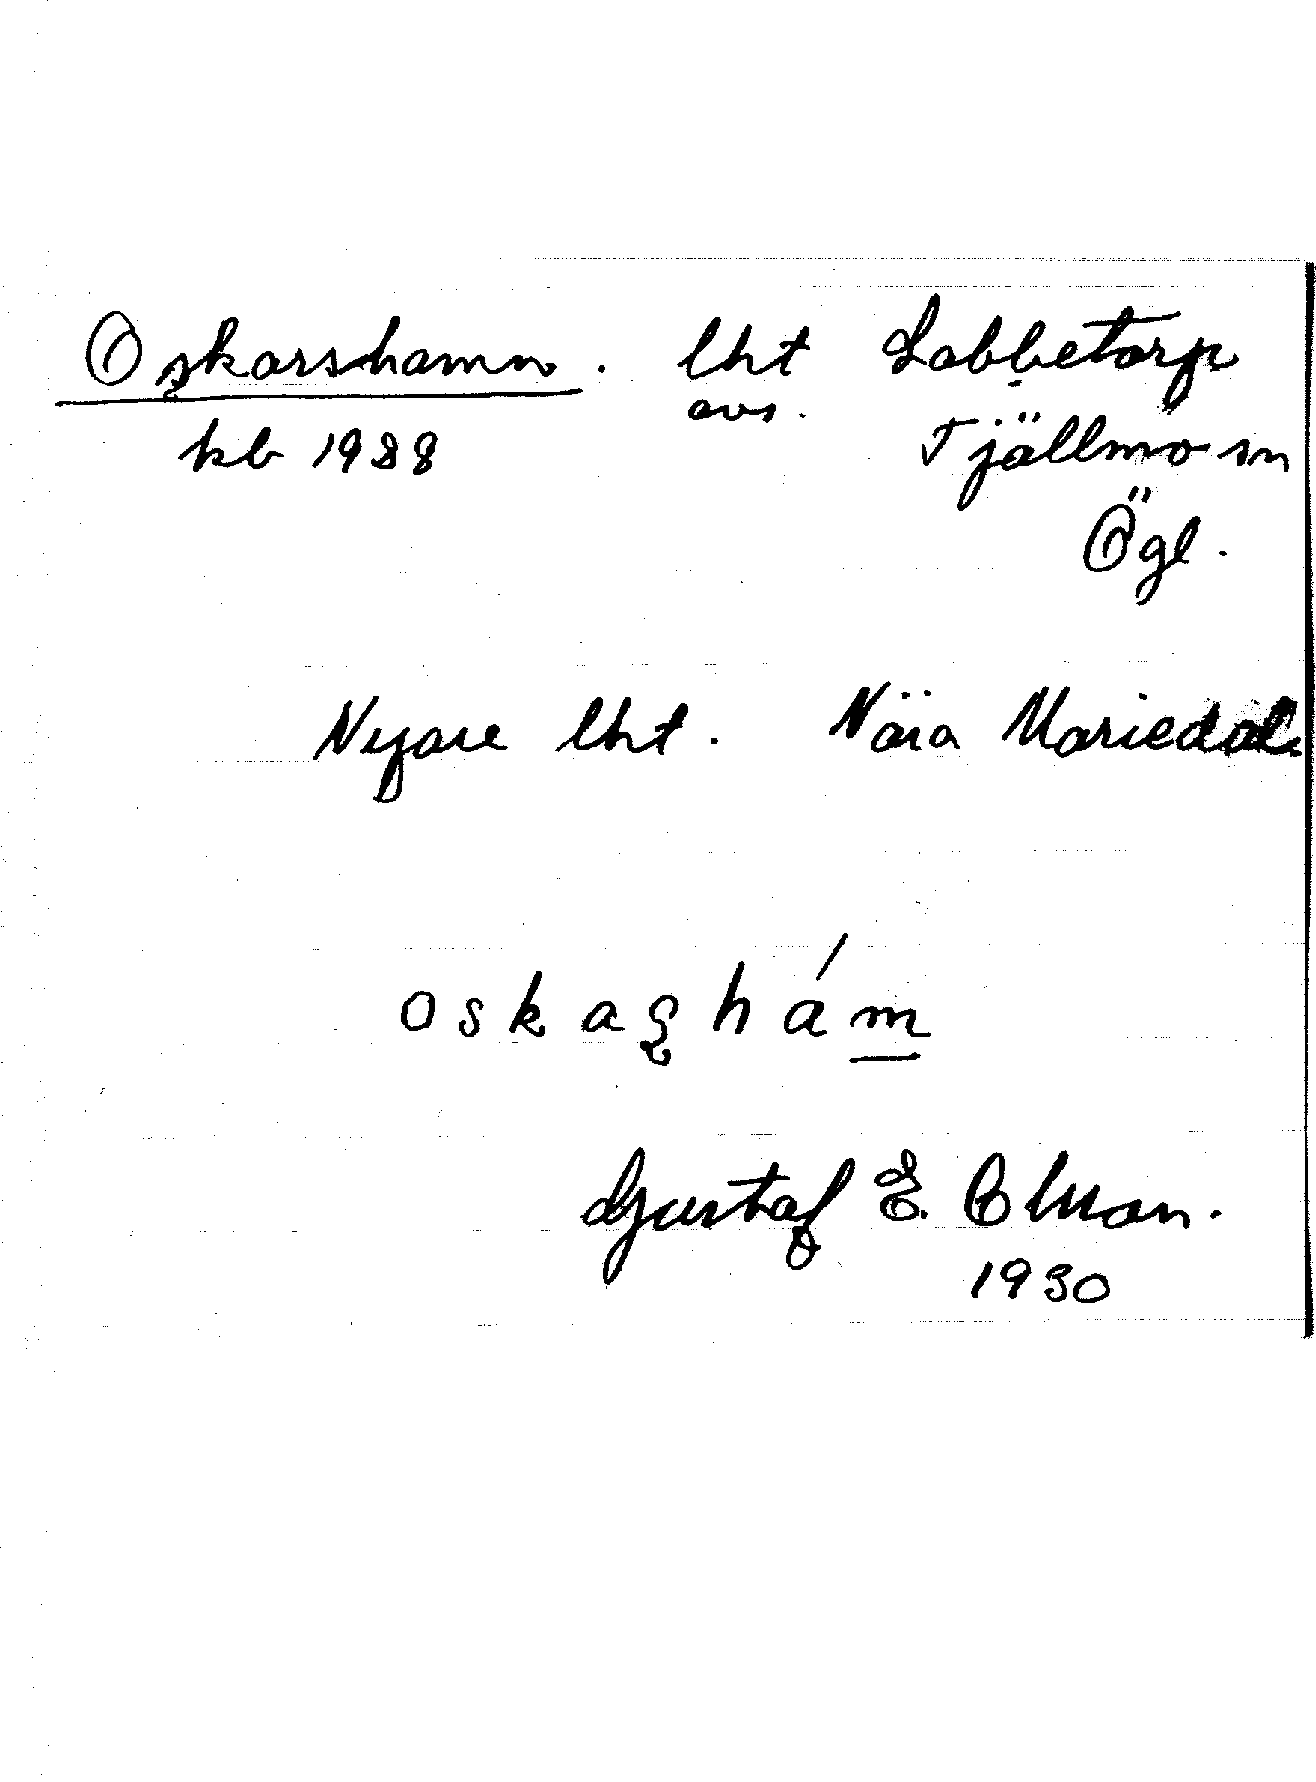 Oskarshamn. lht Labbetorp
avs.
kb 1928 Tjällmo sn
Ögl.
Nyare lht. Nära Mariedal.
oskaʂhám
Gustaf E.
1930